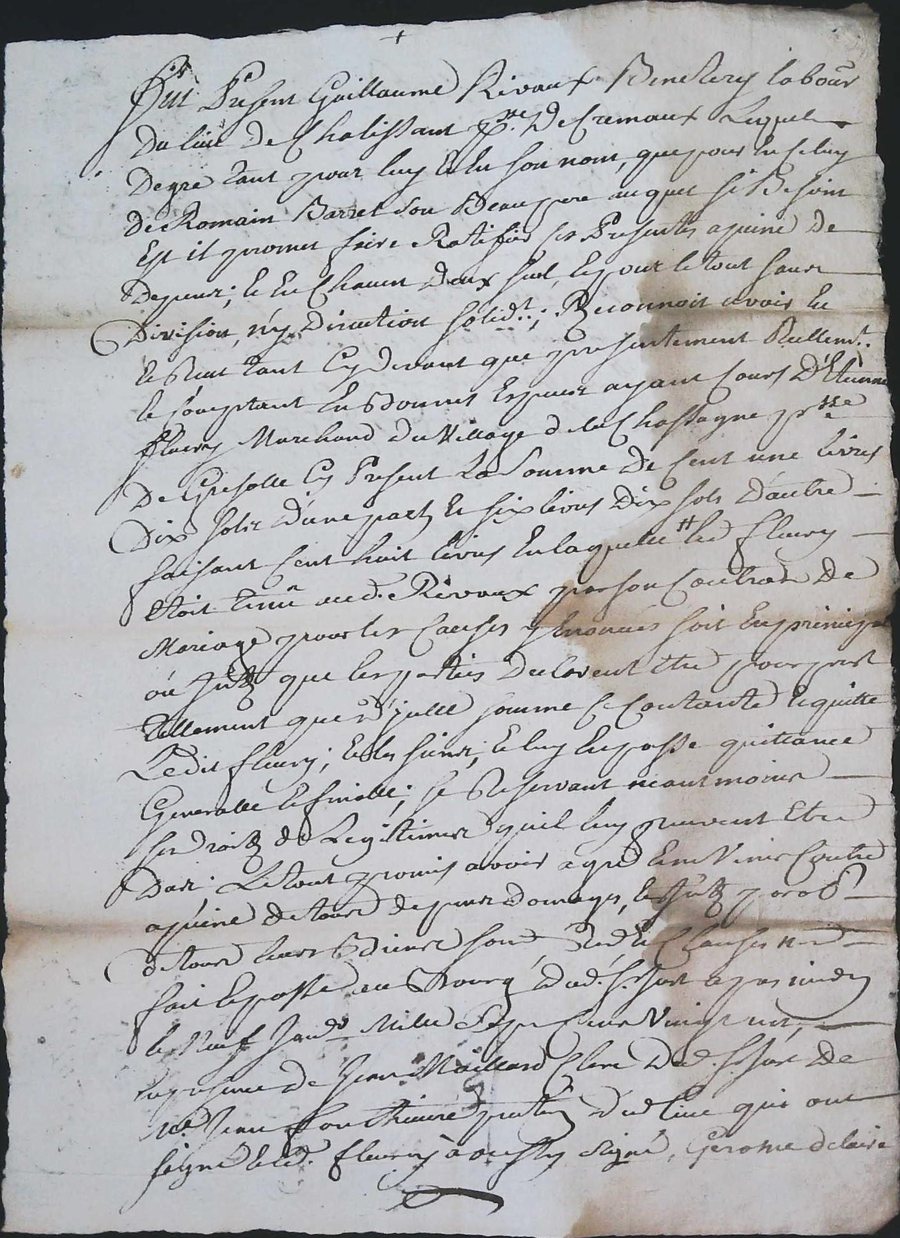 Fut Present Guillaume Rivaux Benetery labour
du lieu de Chalissant pse. De Cremaux Lequel
De gre tant pour luy & En son nom, que pour En Celuy
de Romain Barret son Beaupere auquel si Besoin
Est il promet faire Ratifier ses Presentes a peine De
Depens; & En Chacun Deux seul, & pour le tout sans
Division, ny Discution solidt.; Reconnoit avoir Eu
& Receu tant Cy devant que presentement Reellemt.
& Comptant En Bonnes Especes ayant Cours D'Etienne
fleury Marchand du Village de la Chassagne psse
De Gresolle Cy Present La Somme De Cent une livres
Dix sols d'une part & six livres Dix sols D'autre
faisant Cent huit livres En laquelle led fleury
Etoit tenu aud. Rivaux par son Contrat De
Mariage pour les Causes y Enoncées soit En principal
ou que les parties Declarent Etre pour
tellement que D'jcelle somme se Contante & quitte
Ledit fleury, & les siens, & luy En passe quittance
Generalle & finalle; se Reservant neantmoins
ses droits de Legitimes quil luy peuvent Etre
Dus. Le tout promis avoir agré & ny Venir Contre
a peine de tous depens domages, & ob
de tous leurs Biens Renon & Clauses
fait & passé au Bourg dud. St. Just apres midy
le Neuf Janvr Mille Sept Cens Vingt
En presence de Jean Maillard Clerc Dud. St Just De
Me. Jean dud lieu qui ont
signé & led. fleury a aussy signé, Gerome delaire